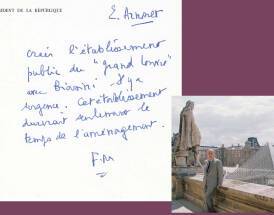 SIDENT DE LA RÉPUBLIQUE
E. Arnoult
Créer l'établissement
public du "grand louvre"
avec Biasini. Il y a
urgence. Cet établissement
durerait seulement le
temps de l'aménagement.
F.M